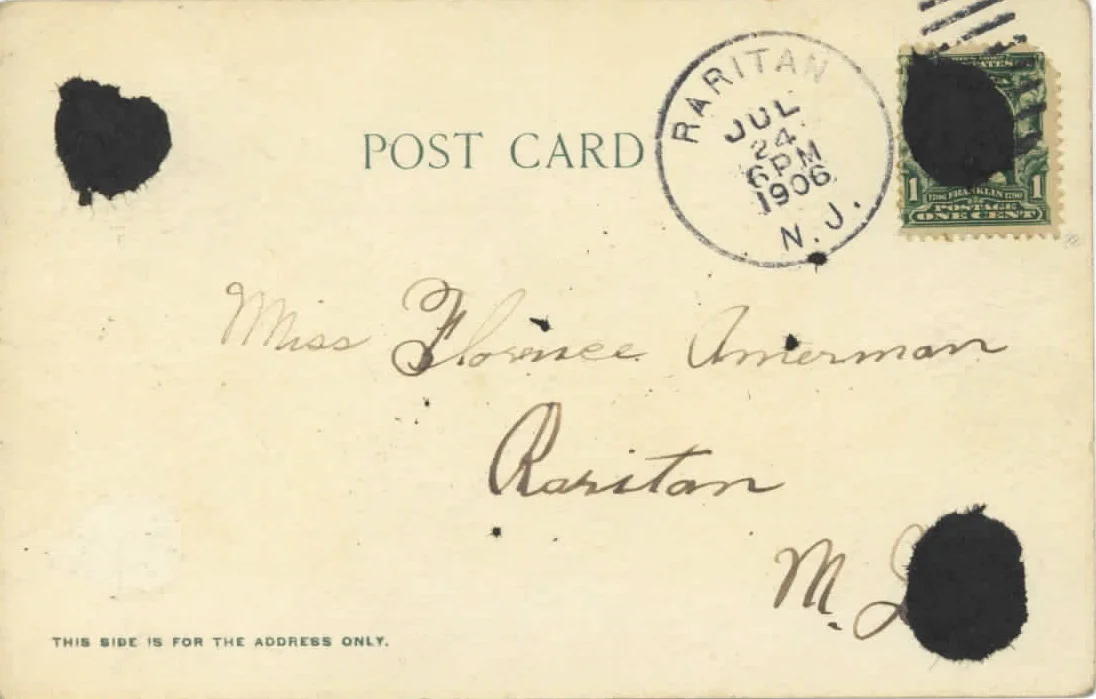 POST CARD
RARITAN
JUL
24
6 PM
1906
N.J.
STATES
1 1706 FRANKLIN 1790 1
POSTAGE
ONE CENT
Miss Florence Amerman
Raritan
N. J
THIS SIDE IS FOR THE ADDRESS ONLY.